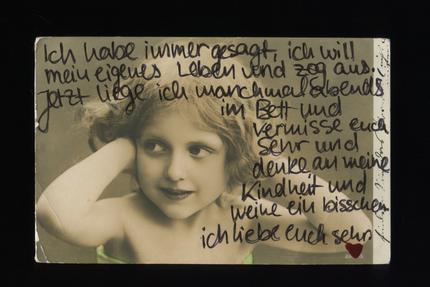 Ich habe immer gesagt, ich will
mein eigenes Leben und zog aus.
Jetzt liege ich manchmal abends
im Bett und
vermisse euch
sehr und
denke an meine
Kindheit und
weine ein bisschen
ich liebe euch sehr.